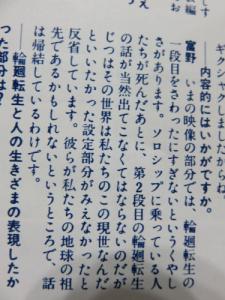 ギクシャクしましたからね。
――内容的にはいかがですか。
富野　いまの映像の部分では、輪廻転生の
一段目をさわったにすぎないというくやし
さがあります。ソロシップに乗っている人
たちが死んだあとに、第2段目の輪廻転生
の話が当然出てこなくてはならないのだが
じつはその世界は私たちのこの現世なんだ
といいたかった設定部分がみえなかったと
反省しています。彼らが私たちの地球の祖
先であるかもしれないというところで、話
は帰結しているわけです。
――輪廻転生と人の生きざまの表現したか
った部分は？